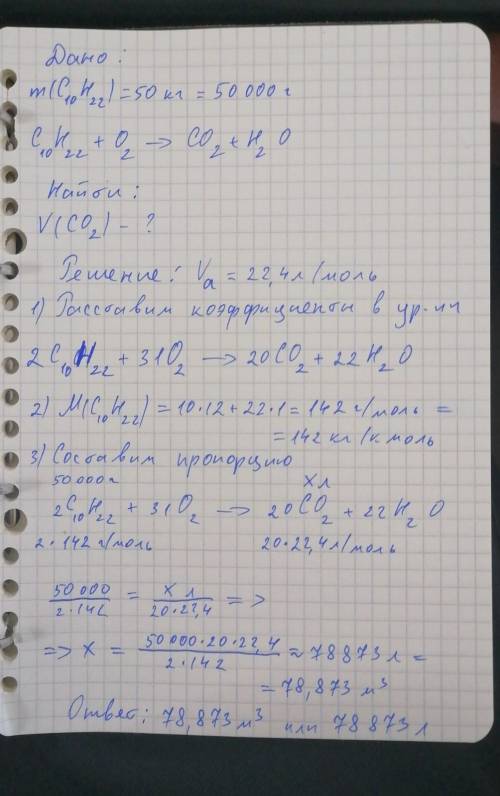 Дано:
m(C10H22) = 50 кг = 50 000 г
C10H22 + O2 → CO2 + H2O
Найти:
V(CO2) - ?
Решение: Va = 22,4 л/моль
1) Расставим коэффициенты в ур-ии
2C10H22 + 31O2 → 20CO2 + 22H2O
2) M(C10H22) = 10·12 + 22·1 = 142 г/моль =
= 142 кг/кмоль
3) Составим пропорцию
50 000 г x л
2C10H22 + 31O2 → 20CO2 + 22H2O
2·142 г/моль 20·22,4 л/моль
50 000 / 2·142 = x л / 20·22,4 =>
=> x = 50 000·20·22,4 / 2·142 ≈ 78 873 л =
= 78,873 м³
Ответ: 78,873 м³ или 78 873 л